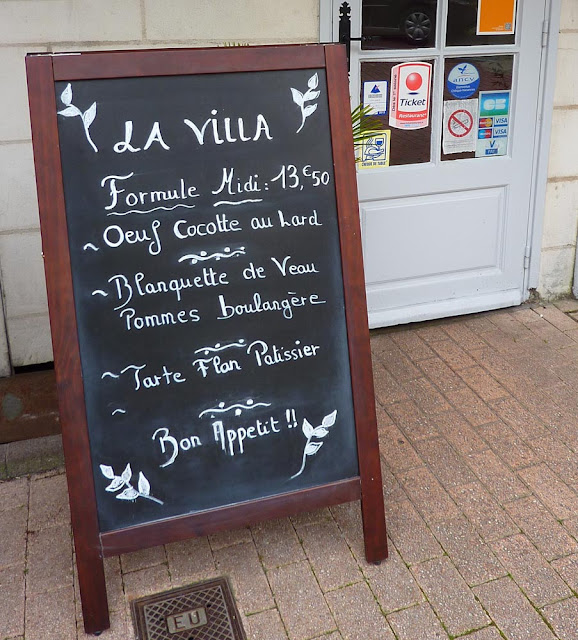 LA VILLA
Formule Midi : 13,€50
~ Oeuf Cocotte au Lard
~ Blanquette de Veau
Pommes boulangère
~ Tarte Flan Patissier
~
Bon Appetit !!
ancv
Ticket
Restaurant
VISA
VISA
EU